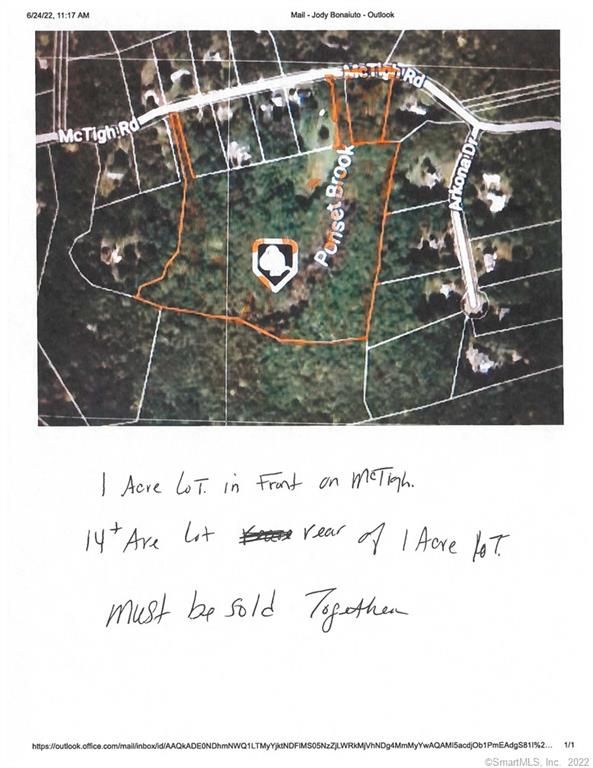 6/24/22, 11:17 AM Mail - Jody Bonaiuto - Outlook
McTigh Rd
McTigh Rd
Arkona Dr
Punset Brook
1 Acre LoT. in Front on McTigh.
14+ Are Lot rear of 1 Acre LoT.
must be sold Together
https://outlook.office.com/mail/inbox/id/AAQkADE0NDhmNWQ1LTMyYjktNDFlMS05NzZjLWRkMjVhNDg4MmMyYwAQAMI5acdjOb1PmEAdgS81l%2... 1/1
©SmartMLS, Inc. 2022